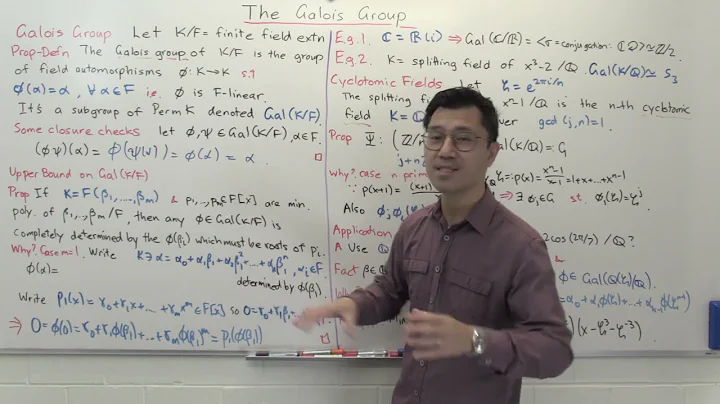 The Galois Group
Galois Group Let K/F = finite field extn
Prop-Defn The Galois group of K/F is the group
of field automorphisms ϕ: K→K s.t
ϕ(α)=α , ∀ α∈F i.e. ϕ is F-linear.
It's a subgroup of Perm K denoted Gal(K/F).
Some closure checks let ϕ,ψ ∈ Gal(K/F), α∈F.
(ϕψ)(α) = ϕ(ψ(α)) = ϕ(α) = α . □
Upper Bound on Gal(K/F)
Prop If K=F(β₁,...,βₘ) & p₁,..,pₘ∈F[x] are min.
poly. of β₁,..,βₘ /F, then any ϕ∈Gal(K/F) is
completely determined by the ϕ(βᵢ) which must be roots of pᵢ.
Why? Case m=1. Write K∋α = α₀+α₁β₁+α₂β₁²+...+αₙβ₁ⁿ, αᵢ∈F.
ϕ(α)=
determined by ϕ(β₁)
Write p₁(x) = γ₀+γ₁x+...+γₘxᵐ∈F[x] so 0=γ₀+γ₁β₁+
⇒ 0=ϕ(0)=γ₀+γ₁ϕ(β₁)+...+γₘϕ(β₁)ᵐ = p₁(ϕ(β₁)) □
E.g.1. ℂ = ℝ(i) ⇒ Gal(ℂ/ℝ)=<σ=conjugation: ℂ
E.g.2. K = splitting field of x³-2 /ℚ. Gal(K/ℚ)≃ S₃
Cyclotomic Fields Let ζ = e^{2πi/n}
The splitting fi xⁿ-1 /ℚ is the n-th cyclotomic
field K = ver gcd(j,n)=1.
Prop Ψ: (ℤ/ al(K/ℚ) = G
j+n
Why? case n prim ζ/ℚ =: p(x) = (xⁿ-1)/(x-1) = 1+x+...+xⁿ⁻¹
∵ p(x+1) = (x+1) ⇒ ∃ ϕⱼ∈G st. ϕⱼ(ζ)=ζʲ
Also ϕⱼϕₗ(
Application 2cos(2π/7) /ℚ?
A. Use ℚ &
Fact β∈ ϕ∈ Gal(ℚ(ζ)/ℚ).
(x-ζ³-ζ⁻³)